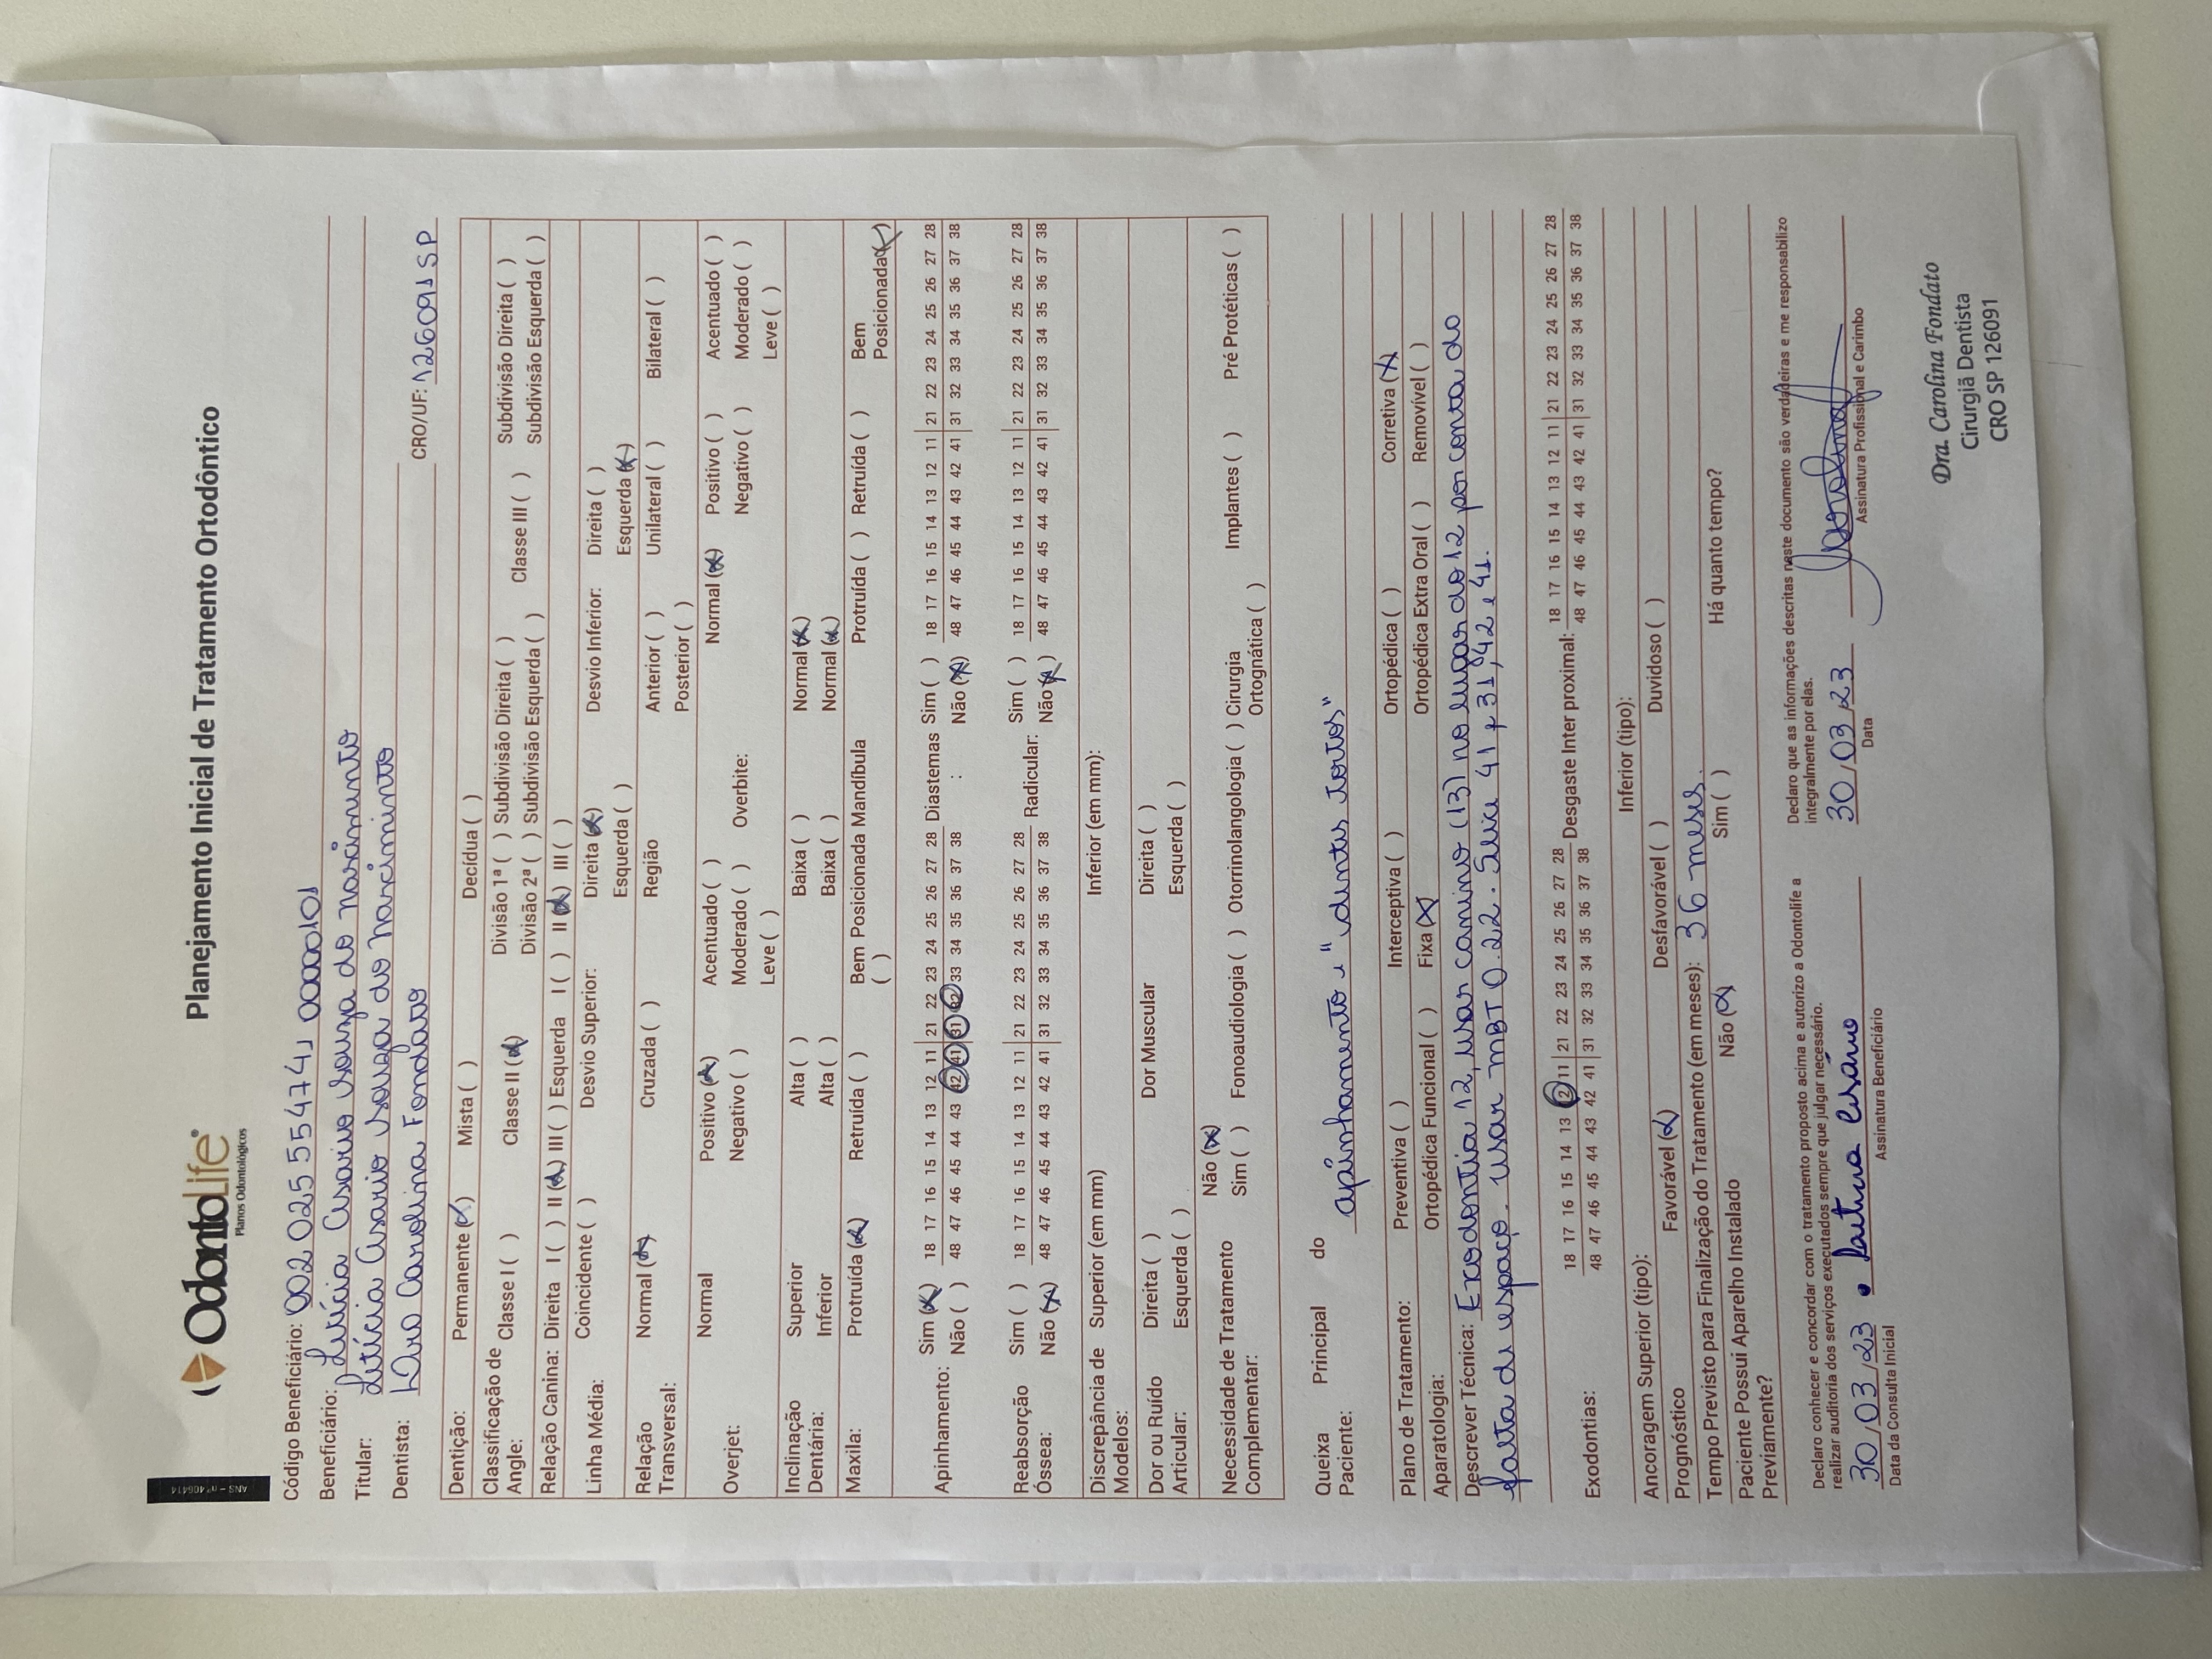 ANS - nº 406414
OdontoLife®
Planos Odontológicos
Planejamento Inicial de Tratamento Ortodôntico
Código Beneficiário: 002 025 554741 0000101
Beneficiário: Letícia Cesario Souza do nascimento
Titular: Letícia Cesario Souza do nascimento
Dentista: Dra Carolina Fondato CRO/UF: 126091 SP
Dentição: Permanente (x) Mista ( ) Decídua ( )
Classificação de Angle: Classe I ( ) Classe II (x) Divisão 1ª ( ) Subdivisão Direita ( ) Classe III ( ) Subdivisão Direita ( )
Divisão 2ª ( ) Subdivisão Esquerda ( ) Subdivisão Esquerda ( )
Relação Canina: Direita I ( ) II (x) III ( ) Esquerda I ( ) II (x) III ( )
Linha Média: Coincidente ( ) Desvio Superior: Direita (x) Desvio Inferior: Direita ( )
Esquerda ( ) Esquerda (x)
Relação Transversal: Normal (x) Cruzada ( ) Região Anterior ( ) Unilateral ( ) Bilateral ( )
Posterior ( )
Overjet: Normal Positivo (x) Acentuado ( ) Overbite: Normal (x) Positivo ( ) Acentuado ( )
Negativo ( ) Moderado ( ) Negativo ( ) Moderado ( )
Leve ( ) Leve ( )
Inclinação Dentária: Superior Alta ( ) Baixa ( ) Normal (x)
Inferior Alta ( ) Baixa ( ) Normal (x)
Maxila: Protruída (x) Retruída ( ) Bem Posicionada ( ) Mandíbula Protruída ( ) Retruída ( ) Bem Posicionada (x)
Apinhamento: Sim (x) 18 17 16 15 14 13 12 11 21 22 23 24 25 26 27 28 Diastemas : Sim ( ) 18 17 16 15 14 13 12 11 21 22 23 24 25 26 27 28
Não ( ) 48 47 46 45 44 43 42 41 31 32 33 34 35 36 37 38 Não (x) 48 47 46 45 44 43 42 41 31 32 33 34 35 36 37 38
Reabsorção Óssea: Sim ( ) 18 17 16 15 14 13 12 11 21 22 23 24 25 26 27 28 Radicular: Sim ( ) 18 17 16 15 14 13 12 11 21 22 23 24 25 26 27 28
Não (x) 48 47 46 45 44 43 42 41 31 32 33 34 35 36 37 38 Não (x) 48 47 46 45 44 43 42 41 31 32 33 34 35 36 37 38
Discrepância de Modelos: Superior (em mm) Inferior (em mm):
Dor ou Ruído Articular: Direita ( ) Dor Muscular Direita ( )
Esquerda ( ) Esquerda ( )
Necessidade de Tratamento Complementar: Não (x)
Sim ( ) Fonoaudiologia ( ) Otorrinolangologia ( ) Cirurgia Ortognática ( ) Implantes ( ) Pré Protéticas ( )
Queixa Principal do Paciente: apinhamento e "dentes tortos"
Plano de Tratamento: Preventiva ( ) Interceptiva ( ) Ortopédica ( ) Corretiva (x)
Aparatologia: Ortopédica Funcional ( ) Fixa (x) Ortopédica Extra Oral ( ) Removível ( )
Descrever Técnica: Exodontia 12, usar canino (13) no lugar do 12 por conta do
falta de espaço. usar MBT 0.22. Slice 41 e 31, 42 e 41.
Exodontias: 18 17 16 15 14 13 12 11 21 22 23 24 25 26 27 28 Desgaste Inter proximal: 18 17 16 15 14 13 12 11 21 22 23 24 25 26 27 28
48 47 46 45 44 43 42 41 31 32 33 34 35 36 37 38 48 47 46 45 44 43 42 41 31 32 33 34 35 36 37 38
Ancoragem Superior (tipo): Inferior (tipo):
Prognóstico Favorável (x) Desfavorável ( ) Duvidoso ( )
Tempo Previsto para Finalização do Tratamento (em meses): 36 meses.
Paciente Possui Aparelho Instalado Previamente? Não (x) Sim ( ) Há quanto tempo?
Declaro conhecer e concordar com o tratamento proposto acima e autorizo a Odontolife a
realizar auditoria dos serviços executados sempre que julgar necessário.
Declaro que as informações descritas neste documento são verdadeiras e me responsabilizo
integralmente por elas.
30/03/23 30/03/23
Data da Consulta Inicial Assinatura Beneficiário Data Assinatura Profissional e Carimbo
Dra. Carolina Fondato
Cirurgiã Dentista
CRO SP 126091